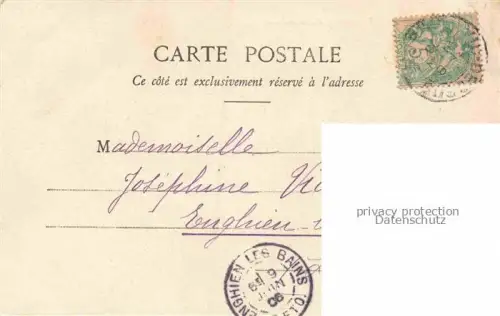 CARTE POSTALE
Ce côté est exclusivement réservé à l'adresse
Mademoiselle
Joséphine
Enghien-
privacy protection
Datenschutz
ENGHIEN LES BAINS